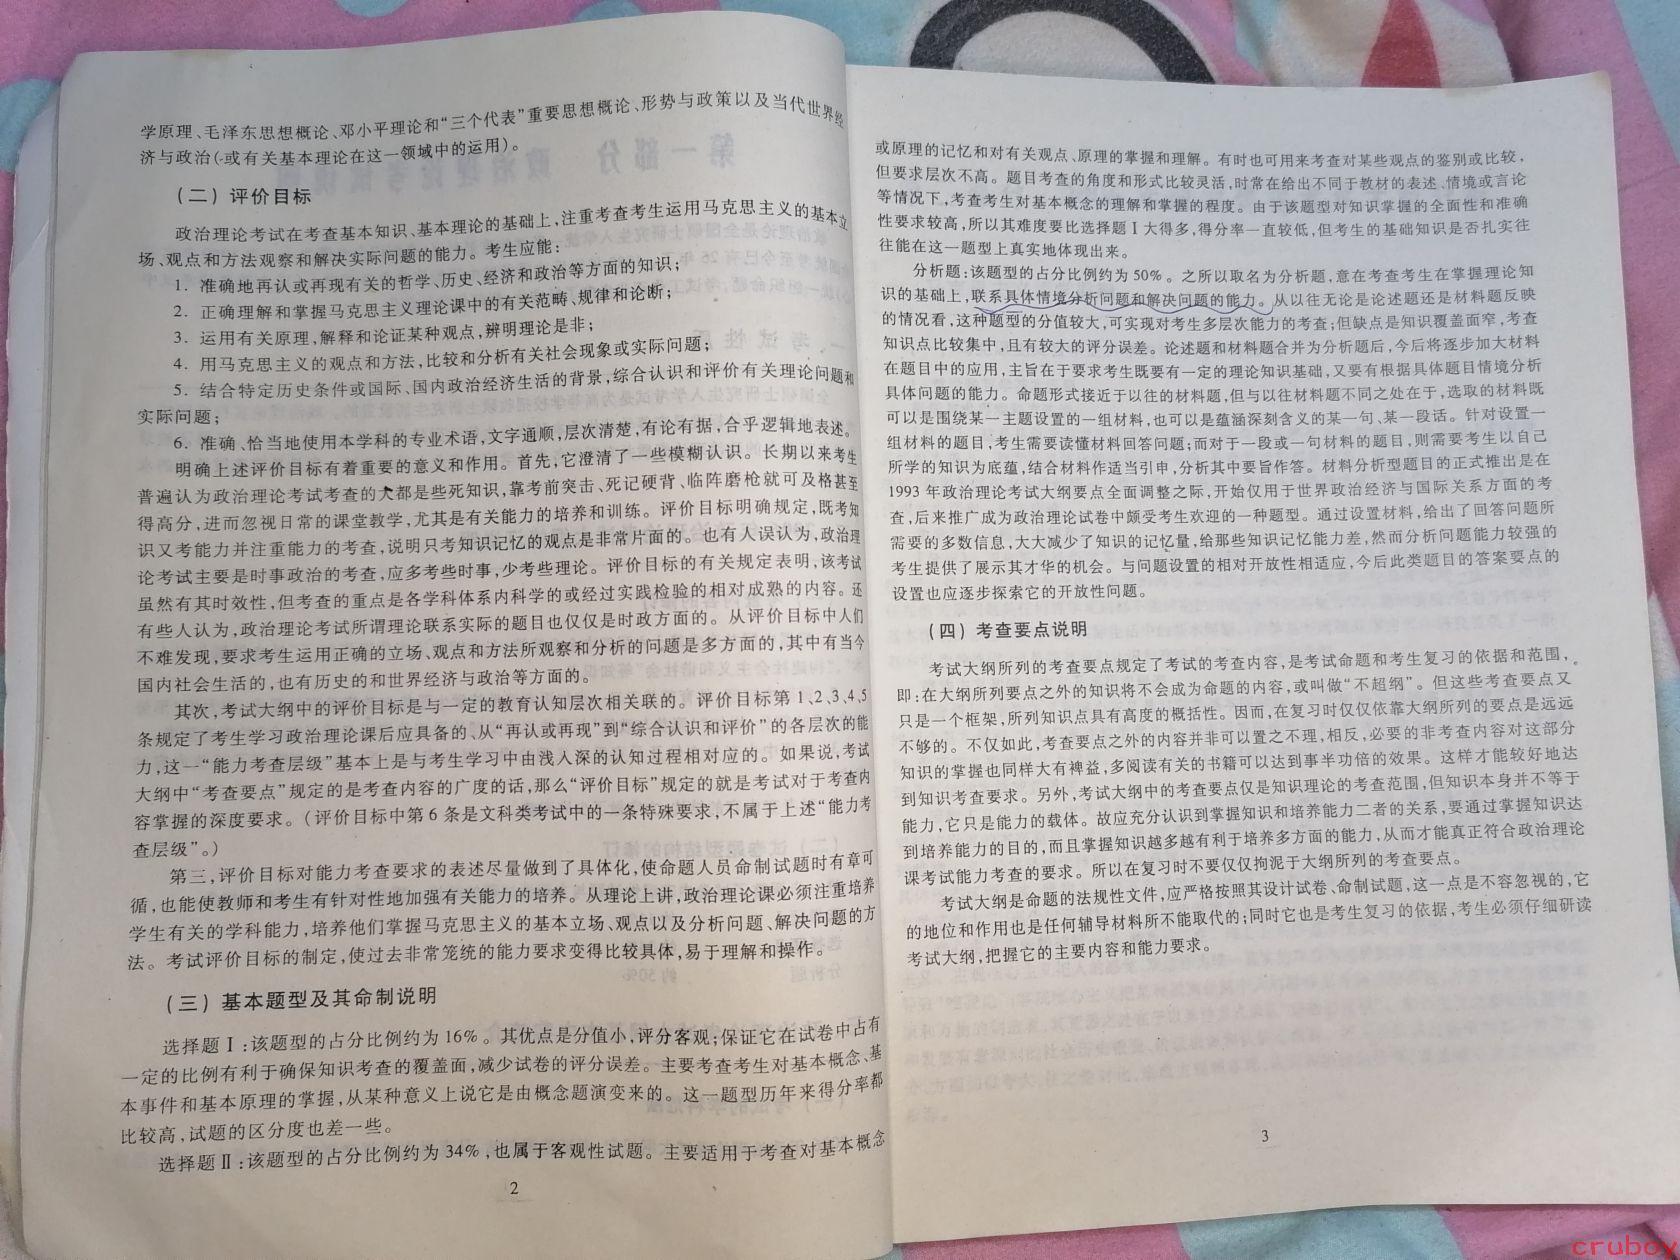 学原理、毛泽东思想概论、邓小平理论和“三个代表”重要思想概论、形势与政策以及当代世界经
济与政治(或有关基本理论在这一领域中的运用)。
(二)评价目标
政治理论考试在考查基本知识、基本理论的基础上,注重考查考生运用马克思主义的基本立
场、观点和方法观察和解决实际问题的能力。考生应能:
1. 准确地再认或再现有关的哲学、历史、经济和政治等方面的知识;
2. 正确理解和掌握马克思主义理论课中的有关范畴、规律和论断;
3. 运用有关原理,解释和论证某种观点,辨明理论是非;
4. 用马克思主义的观点和方法,比较和分析有关社会现象或实际问题;
5. 结合特定历史条件或国际、国内政治经济生活的背景,综合认识和评价有关理论问题和
实际问题;
6. 准确、恰当地使用本学科的专业术语,文字通顺,层次清楚,有论有据,合乎逻辑地表述。
明确上述评价目标有着重要的意义和作用。首先,它澄清了一些模糊认识。长期以来考生
普遍认为政治理论考试考查的大都是些死知识,靠考前突击、死记硬背、临阵磨枪就可及格甚至
得高分,进而忽视日常的课堂教学,尤其是有关能力的培养和训练。评价目标明确规定,既考知
识又考能力并注重能力的考查,说明只考知识记忆的观点是非常片面的。也有人误认为,政治理
论考试主要是时事政治的考查,应多考些时事,少考些理论。评价目标的有关规定表明,该考试
虽然有其时效性,但考查的重点是各学科体系内科学的或经过实践检验的相对成熟的内容。还
有些人认为,政治理论考试所谓理论联系实际的题目也仅仅是时政方面的。从评价目标中人们
不难发现,要求考生运用正确的立场、观点和方法所观察和分析的问题是多方面的,其中有当今
国内社会生活的,也有历史的和世界经济与政治等方面的。
其次,考试大纲中的评价目标是与一定的教育认知层次相关联的。评价目标第1、2、3、4、5
条规定了考生学习政治理论课后应具备的、从“再认或再现”到“综合认识和评价”的各层次的能
力,这一“能力考查层级”基本上是与考生学习中由浅入深的认知过程相对应的。如果说,考试
大纲中“考查要点”规定的是考查内容的广度的话,那么“评价目标”规定的就是考试对于考查内
容掌握的深度要求。(评价目标中第6条是文科类考试中的一条特殊要求,不属于上述“能力考
查层级”。)
第三,评价目标对能力考查要求的表述尽量做到了具体化,使命题人员命制试题时有章可
循,也能使教师和考生有针对性地加强有关能力的培养。从理论上讲,政治理论课必须注重培养
学生有关的学科能力,培养他们掌握马克思主义的基本立场、观点以及分析问题、解决问题的方
法。考试评价目标的制定,使过去非常笼统的能力要求变得比较具体,易于理解和操作。
(三)基本题型及其命制说明
选择题Ⅰ:该题型的占分比例约为16%。其优点是分值小,评分客观;保证它在试卷中占有
一定的比例有利于确保知识考查的覆盖面,减少试卷的评分误差。主要考查考生对基本概念、基
本事件和基本原理的掌握,从某种意义上说它是由概念题演变来的。这一题型历年来得分率都
比较高,试题的区分度也差一些。
选择题Ⅱ:该题型的占分比例约为34%,也属于客观性试题。主要适用于考查对基本概念
2
或原理的记忆和对有关观点、原理的掌握和理解。有时也可用来考查对某些观点的鉴别或比较,
但要求层次不高。题目考查的角度和形式比较灵活,时常在给出不同于教材的表述、情境或言论
等情况下,考查考生对基本概念的理解和掌握的程度。由于该题型对知识掌握的全面性和准确
性要求较高,所以其难度要比选择题Ⅰ大得多,得分率一直较低,但考生的基础知识是否扎实往
往能在这一题型上真实地体现出来。
分析题:该题型的占分比例约为50%。之所以取名为分析题,意在考查考生在掌握理论知
识的基础上,联系具体情境分析问题和解决问题的能力。从以往无论是论述题还是材料题反映
的情况看,这种题型的分值较大,可实现对考生多层次能力的考查;但缺点是知识覆盖面窄,考查
知识点比较集中,且有较大的评分误差。论述题和材料题合并为分析题后,今后将逐步加大材料
在题目中的应用,主旨在于要求考生既要有一定的理论知识基础,又要有根据具体题目情境分析
具体问题的能力。命题形式接近于以往的材料题,但与以往材料题不同之处在于,选取的材料既
可以是围绕某一主题设置的一组材料,也可以是蕴涵深刻含义的某一句、某一段话。针对设置一
组材料的题目,考生需要读懂材料回答问题;而对于一段或一句材料的题目,则需要考生以自己
所学的知识为底蕴,结合材料作适当引申,分析其中要旨作答。材料分析型题目的正式推出是在
1993年政治理论考试大纲要点全面调整之际,开始仅用于世界政治经济与国际关系方面的考
查,后来推广成为政治理论试卷中颇受考生欢迎的一种题型。通过设置材料,给出了回答问题所
需要的多数信息,大大减少了知识的记忆量,给那些知识记忆能力差,然而分析问题能力较强的
考生提供了展示其才华的机会。与问题设置的相对开放性相适应,今后此类题目的答案要点的
设置也应逐步探索它的开放性问题。
(四)考查要点说明
考试大纲所列的考查要点规定了考试的考查内容,是考试命题和考生复习的依据和范围,
即:在大纲所列要点之外的知识将不会成为命题的内容,或叫做“不超纲”。但这些考查要点又
只是一个框架,所列知识点具有高度的概括性。因而,在复习时仅仅依靠大纲所列的要点是远远
不够的。不仅如此,考查要点之外的内容并非可以置之不理,相反,必要的非考查内容对这部分
知识的掌握也同样大有裨益,多阅读有关的书籍可以达到事半功倍的效果。这样才能较好地达
到知识考查要求。另外,考试大纲中的考查要点仅是知识理论的考查范围,但知识本身并不等于
能力,它只是能力的载体。故应充分认识到掌握知识和培养能力二者的关系,要通过掌握知识达
到培养能力的目的,而且掌握知识越多越有利于培养多方面的能力,从而才能真正符合政治理论
课考试能力考查的要求。所以在复习时不要仅仅拘泥于大纲所列的考查要点。
考试大纲是命题的法规性文件,应严格按照其设计试卷、命制试题,这一点是不容忽视的,它
的地位和作用也是任何辅导材料所不能取代的;同时它也是考生复习的依据,考生必须仔细研读
考试大纲,把握它的主要内容和能力要求。
3
cruboy